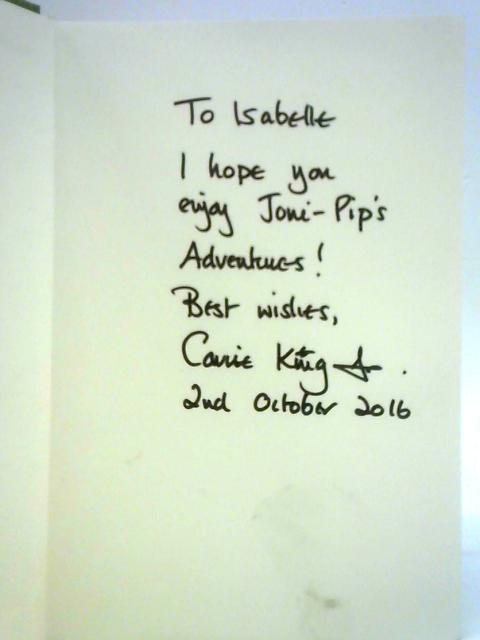 To Isabelle
I hope you
enjoy Joni-Pip's
Adventures!
Best wishes,
Carrie King
2nd October 2016